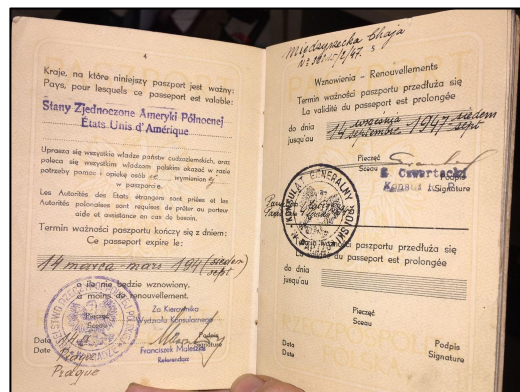 4
Kraje, na które niniejszy paszport jest ważny:
Pays, pour lesquels ce passeport est valable:
Stany Zjednoczone Ameryki Północnej
États Unis d'Amérique
Uprasza się wszystkie władze państw cudzoziemskich, oraz
poleca się wszystkim władzom polskim okazać w razie
potrzeby pomoc i opiekę osób wymienion
w paszporcie.
Les Autorités des États étrangers sont priées et les
Autorités polonaises sont requises de prêter au porteur
aide et assistance en cas de besoin.
Termin ważności paszportu kończy się z dniem:
Ce passeport expire le:
14 marca mars 1947 (siedem
sept
o ile nie będzie wznowiony.
à moins de renouvellement.
Za Kierownika
Wydziału Konsularnego
Pieczęć
Sceau
Podpis
Signature
Data
Date
Prague
Franciszek
Referendarz
Międzyrzecka Chaja
5
Wznowienia - Renouvellements
Termin ważności paszportu przedłuża się
La validité du passeport est prolongée
do dnia
jusqu'au
14 września
14 septembre 1947 siedem
sept
Pieczęć
Sceau
Podpis
Signature
Konsul
KONSULAT GENERALNY
Termin ważności paszportu przedłuża się
La validité du passeport est prolongée
do dnia
jusqu'au
Pieczęć
Sceau
Data
Date
Podpis
Signature